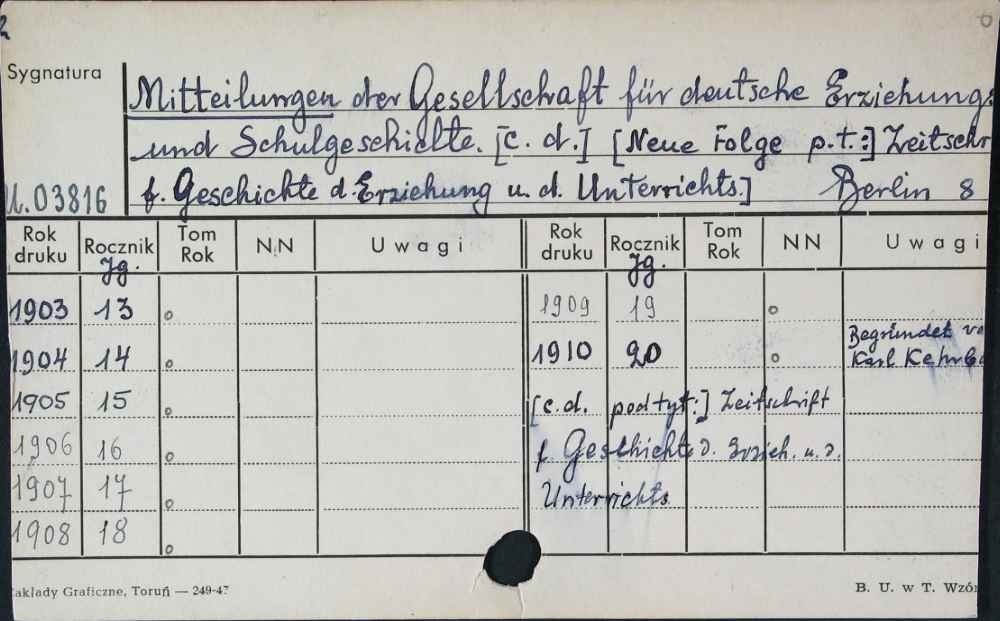 Sygnatura
Mitteilungen der Gesellschaft für deutsche Erziehungs
und Schulgeschichte. [c. d.] [Neue Folge p.t.:] Zeitschr
f. Geschichte d. Erziehung u. d. Unterrichts.] Berlin 8
U.03816
Rok druku Rocznik Jg. Tom Rok NN Uwagi Rok druku Rocznik Jg. Tom Rok NN Uwagi
1903 13 1909 19
1904 14 1910 20 Begründet
Karl
1905 15 [c.d. podtyt:] Zeitschrift
1906 16 f. Geschichte d. Erzieh. u. d.
1907 17 Unterrichts
1908 18
akłady Graficzne, Toruń — 249-47
B. U. w T. Wzó